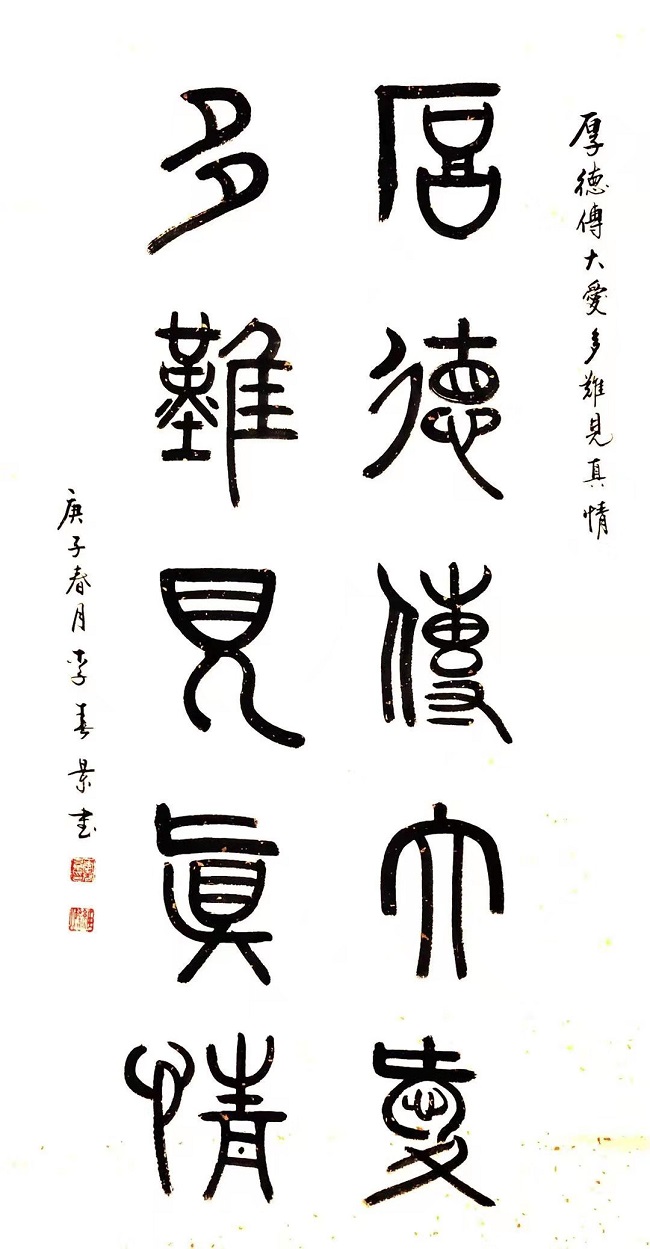 厚德傳大愛多難見真情
厚德傳大愛
多難見真情
庚子春月李春景书